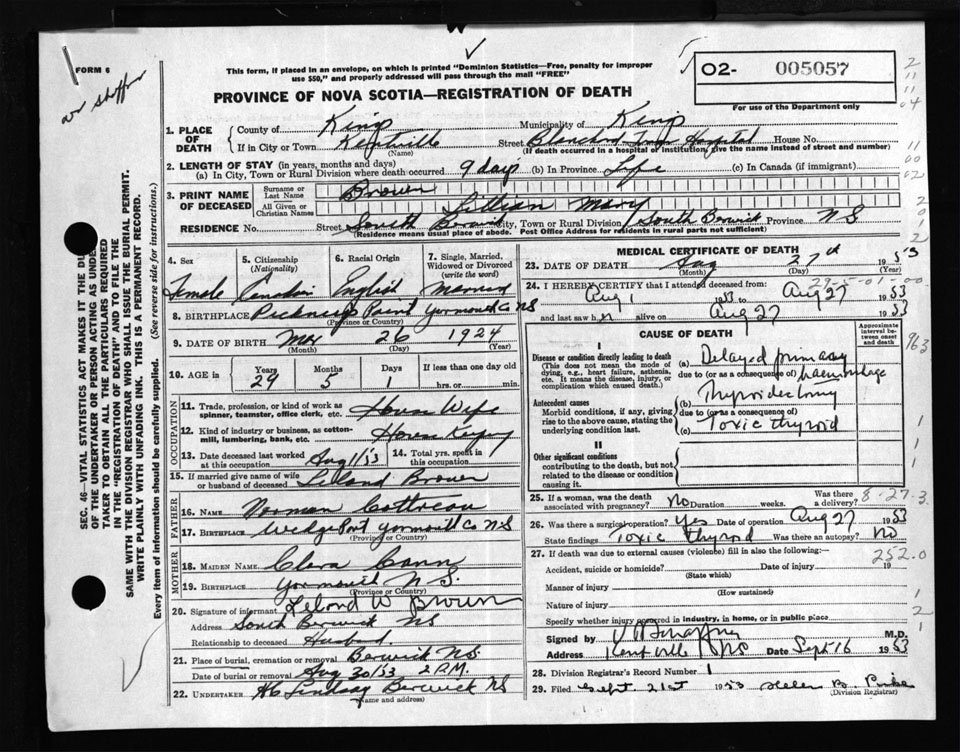 FORM 6
This form, if placed in an envelope, on which is printed "Dominion Statistics—Free, penalty for improper
use $50," and properly addressed will pass through the mail "FREE"
O2- 005057
For use of the Department only
PROVINCE OF NOVA SCOTIA—REGISTRATION OF DEATH
SEC. 46—VITAL STATISTICS ACT MAKES IT THE
OF THE UNDERTAKER OR PERSON ACTING AS UNDER
TAKER TO OBTAIN ALL THE PARTICULARS REQUIRED
IN THE "REGISTRATION OF DEATH" AND TO FILE THE
SAME WITH THE DIVISION REGISTRAR WHO SHALL ISSUE THE BURIAL PERMIT.
WRITE PLAINLY WITH UNFADING INK. THIS IS A PERMANENT RECORD.
Every item of information should be carefully supplied. (See reverse side for instructions.)
1. PLACE OF DEATH
County of Kings Municipality of Kings
If in City or Town Kentville Street Hospital House No.
(Name) (If death occurred in a hospital or institution, give the name instead of street and number)
2. LENGTH OF STAY (in years, months and days)
(a) In City, Town or Rural Division where death occurred 9 days (b) In Province Life (c) In Canada (if immigrant)
3. PRINT NAME OF DECEASED
Surname or Last Name Brown
All Given or Christian Names Lillian Mary
RESIDENCE No. Street South Berwick City, Town or Rural Division South Berwick Province N S
(Residence means usual place of abode. Post Office Address for residents in rural parts not sufficient)
4. Sex Female
5. Citizenship (Nationality) Canadian
6. Racial Origin English
7. Single, Married, Widowed or Divorced (write the word) Married
8. BIRTHPLACE Point Yarmouth Co NS
(Province or Country)
9. DATE OF BIRTH Mar 26 1924
(Month) (Day) (Year)
10. AGE in Years 29 Months 5 Days 1 If less than one day old
hrs. or min.
OCCUPATION
11. Trade, profession, or kind of work as spinner, teamster, office clerk, etc. House Wife
12. Kind of industry or business, as cotton-mill, lumbering, bank, etc. House Keeping
13. Date deceased last worked at this occupation Aug 1/53 14. Total yrs. spent in this occupation
15. If married give name of wife or husband of deceased Leland Brown
FATHER
16. NAME Norman Cottreau
17. BIRTHPLACE Wedge Port Yarmouth Co NS
(Province or Country)
MOTHER
18. MAIDEN NAME Clara
19. BIRTHPLACE Yarmouth N S.
(Province or Country)
20. Signature of informant Leland W Brown
Address South Berwick NS
Relationship to deceased Husband
21. Place of burial, cremation or removal Berwick NS.
Date of burial or removal Aug 30/53 2 P.M.
22. UNDERTAKER Lindsay Berwick NS
(Name and address)
MEDICAL CERTIFICATE OF DEATH
23. DATE OF DEATH Aug 27th 1953
(Month) (Day) (Year)
24. I HEREBY CERTIFY that I attended deceased from:
Aug 1 1953 to Aug 27 1953
and last saw h er alive on Aug 27 1953
CAUSE OF DEATH
Approximate interval between onset and death
I
Disease or condition directly leading to death
(This does not mean the mode of dying, e.g., heart failure, asthenia, etc. It means the disease, injury, or complication which caused death.)
(a) Delayed primary haemorrhage
due to (or as a consequence of)
Antecedent causes
Morbid conditions, if any, giving rise to the above cause, stating the underlying condition last.
(b) Thyroidectomy
due to (or as a consequence of)
(c) Toxic thyroid
II
Other significant conditions
contributing to the death, but not related to the disease or condition causing it.
25. If a woman, was the death associated with pregnancy? No Duration weeks. Was there a delivery?
8-27-3
26. Was there a surgical operation? Yes Date of operation Aug 27 1953
State findings Toxic thyroid Was there an autopsy? No
27. If death was due to external causes (violence) fill in also the following:—
252.0
Accident, suicide or homicide? Date of injury 19
(State which)
Manner of injury
(How sustained)
Nature of injury
Specify whether injury occurred in industry, in home, or in public place
Signed by M.D.
Address Kentville NS Date Sept 16 1953
28. Division Registrar's Record Number 1
29. Filed Sept. 21st 1953 Helen B.
(Division Registrar)